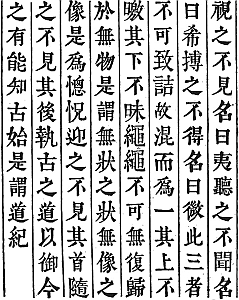 視之不見名曰夷聽之不聞名
曰希搏之不得名曰微此三者
不可致詰故混而爲一其上不
曒其下不昧繩繩不可無復歸
於無物是謂無狀之狀無像之
像是爲惚怳迎之不見其首隨
之不見其後執古之道以御今
之有能知古始是謂道紀